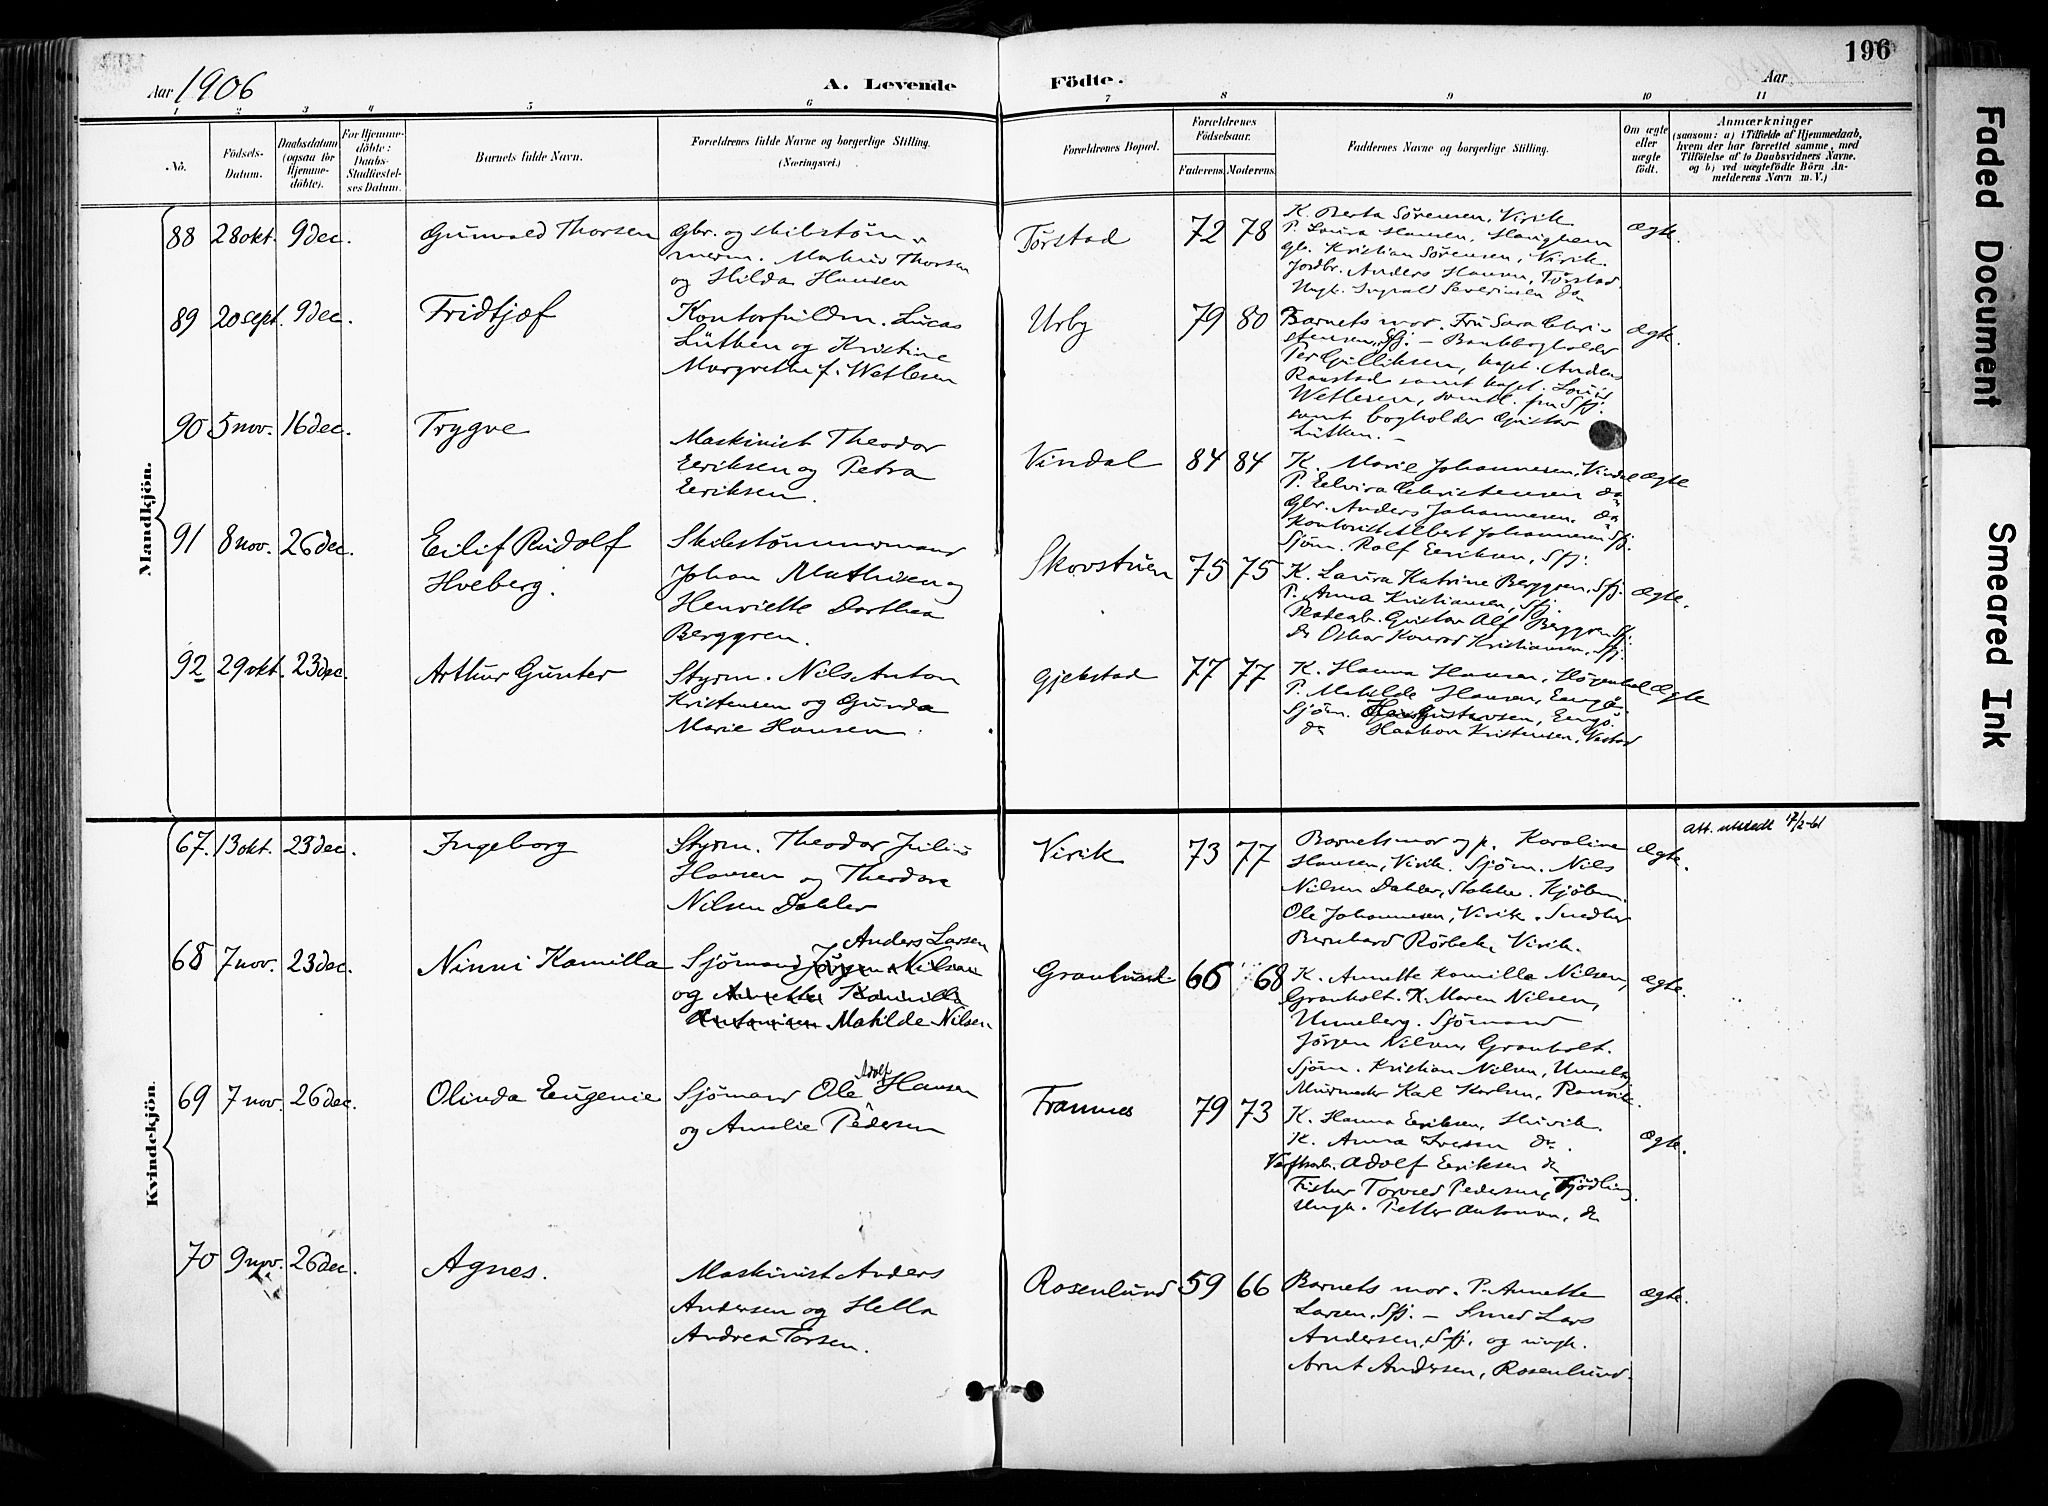 Aar 1906
A. Levende
Födte.
Aar
196
1 2 3 4 5 6 7 8 9 10 11
Nô.
Födsels-
Datum.
Daabsdatum
(ogsaa för
Hjemme-
döbte).
For Hjemme-
döbte:
Daabs-
Stadfæstel-
ses Datum.
Barnets fulde Navn.
Forældrenes fulde Navne og borgerlige Stilling.
(Næringsvei.)
Forældrenes Bopæl.
Forældrenes
Födselsaar.
Faderens. Moderens.
Faddernes Navne og borgerlige Stilling.
Om ægte
eller
uægte
födt.
Anmærkninger
(saasom: a) i Tilfælde af Hjemmedaab,
hvem der har forrettet samme, med
Tilföielse af to Daabsvidners Navne.
og b) ved uægtefödte Börn An-
melderens Navn m. V.)
Mandkjön.
88 28 okt. 9 dec. Gunvald Thorsen
Gbr. og skibstöm-
merm. Markus Thorsen
og Hilda Hansen
Törstad 72 78
K. Berta Sörensen, Virik
P. Laura Hansen,
gb. Kristian Sörensen, Virik.
Jordbr. Anders Hansen, Törstad.
Ungk. Ingvald Severinsen do
ægte.
89 20 sept. 9 dec. Fridtjof
Kontorfuldm. Lucas
Lütken og Kristine
Margrethe f. Wetlesen
Urby 79 80
Barnets mor. Fru Sara Chri-
stensen, Sfj. – Bankbogholder
Per Gulliksen, kapt. Anders
Raastad samt kapt. Louis
Wetlesen, samtl. fra Sfj.
samt bogholder Gustav
Lütken. –
ægte.
90 5 nov. 16 dec. Trygve
Maskinist Theodor
Eriksen og Petra
Eriksen.
Vindal 84 84
K. Marie Johannesen, Vindal
P. Elvira Christensen do
Gbr. Anders Johannesen, do
Kontorist Albert Johannesen, Sfj.
Sjöm. Rolf Eriksen, Sfj.
ægte
91 8 nov. 26 dec. Eilif Rudolf
Hveberg.
Skibstömmermand
Johan Mathisen og
Henriette Dorthea
Berggren.
Skovstuen 75 75
K. Laura Katrine Berggren, Sfj.
P. Anna Kristiansen, Sfj.
Pladearb. Gustav Alf Berggren Sfj.
do Oskar Konrad Kristiansen, Sfj.
ægte.
92 29 okt. 23 dec. Arthur Gunter
Styrm. Nils Anton
Kristensen og Gunda
Marie Hansen.
Gjekstad 77 77
K. Hanna Hansen,
P. Matilde Hansen, Engö.
Sjöm. Gustavsen, Engö.
do Haakon Kristensen,
ægte
Kvindekjön.
67. 13 okt. 23 dec. Ingeborg
Styrm. Theodor Julius
Hansen og Theodora
Nilsen Dahler
Virik 73 77
Barnets mor og p. Karoline
Hansen, Virik. Sjöm. Nils
Nilsen Dahler, Stokke. Kjöbm.
Ole Johannesen, Virik. Snedker
Bernhard Rörbek, Virik.
ægte.
Att. utstedt 17/2-61
68 7 nov. 23 dec. Ninni Kamilla
Anders Larsen
Sjömand Jörgen Nilsen
og Annette Kamilla
Antonisen Matilde Nilsen
Granlund 66 68
K. Annette Kamilla Nilsen,
Granholt. K. Maren Nilsen,
Unneberg. Sjömand
Jörgen Nilsen, Granholt.
Sjöm. Kristian Nilsen, Unneberg
Murmester Karl Karlsen, Ranvik.
ægte.
69 7 nov. 26 dec. Olinda Eugenie
Sjömand Ole Adolf Hansen
og Amalie Pedersen
Framnes 79 73
K. Hanna Eriksen, Huvik.
K. Anna Iversen do.
Verftsarb. Adolf Eriksen do
Fisker Torvald Pedersen, Tjödling.
Ungk. Petter Antonsen, do
ægte.
70 9 nov. 26 dec. Agnes.
Maskinist Anders
Andersen og Hella
Andrea Torsen.
Rosenlund 59 66
Barnets mor. P. Annette
Larsen, Sfj. – Smed Lars
Andersen, Sfj. og ungk.
Arnt Andersen, Rosenlund.
ægte.
Faded Document
Smeared Ink